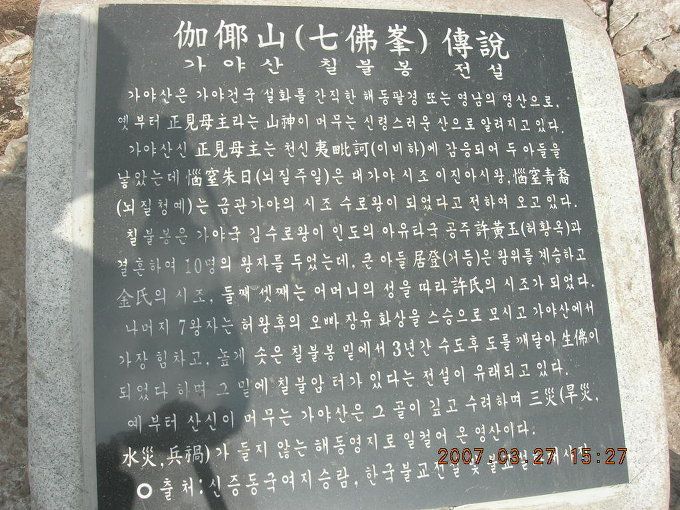 伽倻山(七佛峯)傳說
가야산 칠불봉 전설
가야산은 가야건국 설화를 간직한 해동팔경 또는 영남의 영산으로,
옛부터 正見母主라는 山神이 머무는 신령스러운 산으로 알려지고 있다.
가야산신 正見母主는 천신 夷毗訶(이비하)에 감응되어 두 아들을
낳았는데 惱窒朱日(뇌질주일)은 대가야 시조 이진아시왕, 惱窒靑裔
(뇌질청예)는 금관가야의 시조 수로왕이 되었다고 전하여 오고 있다.
칠불봉은 가야국 김수로왕이 인도의 아유타국 공주 許黃玉(허황옥)과
결혼하여 10명의 왕자를 두었는데, 큰 아들 居登(거등)은 왕위를 계승하고
金氏의 시조, 둘째 셋째는 어머니의 성을 따라 許氏의 시조가 되었다.
나머지 7왕자는 허왕후의 오빠 장유화상을 스승으로 모시고 가야산에서
가장 힘차고, 높게 솟은 칠불봉 밑에서 3년간 수도후 도를 깨달아 生佛이
되었다 하며 그 밑에 칠불암 터가 있다는 전설이 유래되고 있다.
예부터 산신이 머무는 가야산은 그 골이 깊고 수려하며 三災(旱災,
水災, 兵禍)가 들지 않는 해동영지로 일컬어 온 영산이다.
출처 : 신증동국여지승람, 한국불교전설
2007.03.27 15:27